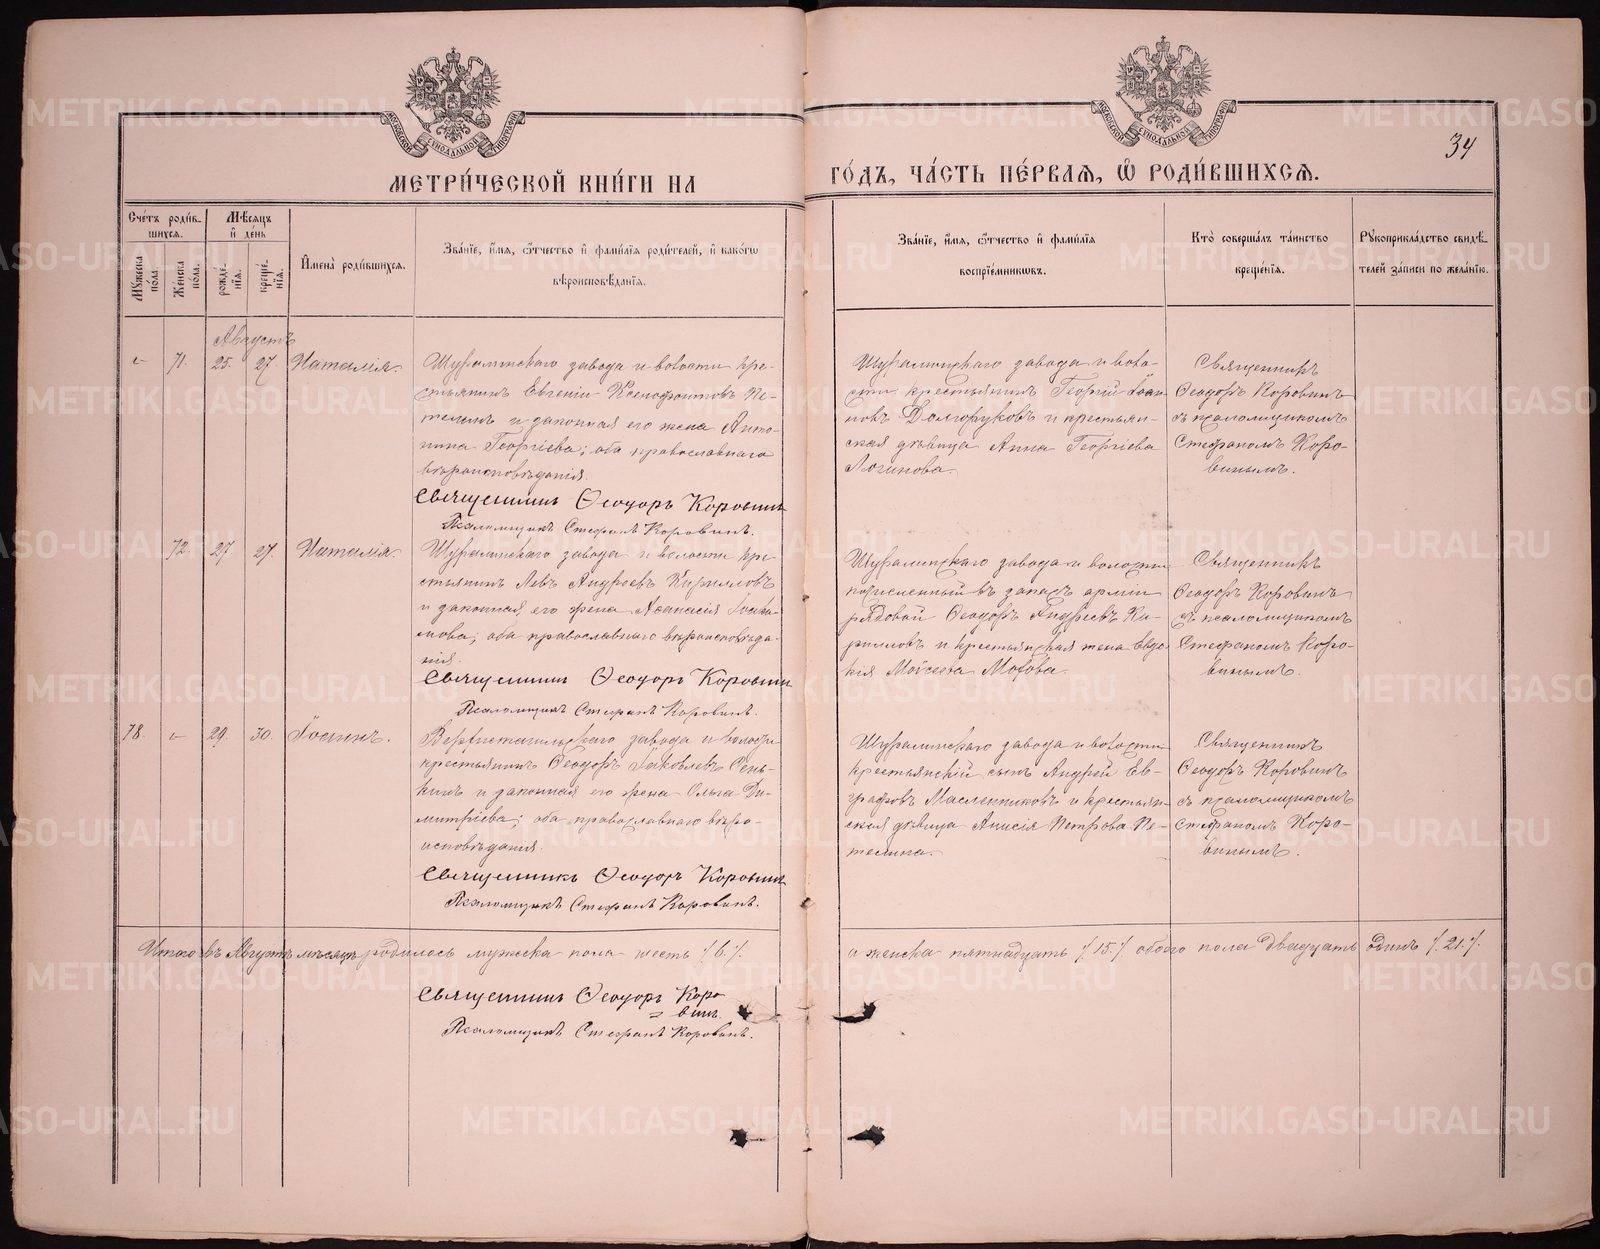 34
МЕТРИ́ЧЕСКОЙ КНИ́ГИ НА ГО́ДЪ, ЧА́СТЬ ПЕ́РВАѦ, Ѽ РОДИ́ВШИХСѦ.
Сче́тъ роди́в-
шихсѧ.
Мꙋ́жеска по́ла.
Же́нска по́ла.
Мѣ́сѧцъ и҆ де́нь
рожде́-
нїѧ.
креще́-
нїѧ.
И҆мена̀ роди́вшихсѧ.
Зва́нїе, и҆́мѧ, ѻ҆́тчество и҆ фами́лїѧ роди́телей, и҆ како́гѡ
вѣроисповѣ́данїѧ.
Зва́нїе, и҆́мѧ, ѻ҆́тчество и҆ фами́лїѧ
воспрїе́мниковъ.
Кто̀ соверша́лъ та́инство
креще́нїѧ.
Рꙋкоприкла́дство свидѣ́-
телей за́писи по жела́нїю.
Августъ
71. 25. 27. Наталія.
Шуралинскаго завода и волости кре-
стьянинъ Евгеній Ксенофонтовъ Пе-
телинъ и законная его жена Анто-
нина Георгіева; оба православнаго
вѣроисповѣданія.
Священникъ Ѳеодоръ Коровинъ
Псаломщикъ Стефанъ Коровинъ.
Шуралинскаго завода и воло-
сти крестьянинъ Георгій Іоан-
новъ Долгоруковъ и крестьян-
ская дѣвица Анна Георгіева
Логинова.
Священникъ
Ѳеодоръ Коровинъ
съ псаломщикомъ
Стефаномъ Коро-
винымъ.
72. 27 27. Наталія.
Шуралинскаго завода и волости кре-
стьянинъ Левъ Андреевъ Кирилловъ
и законная его жена Аѳанасія Іоан-
нова; оба православнаго вѣроисповѣда-
нія.
Священникъ Ѳеодоръ Коровинъ
Псаломщикъ Стефанъ Коровинъ.
Шуралинскаго завода и волости
причисленный въ запасъ арміи
рядовой Ѳеодоръ Андреевъ Ки-
рилловъ и крестьянская жена Евдо-
кія Моѵсеева
Священникъ
Ѳеодоръ Коровинъ
съ псаломщикомъ
Стефаномъ Коро-
винымъ.
78. 29. 30. Іоаннъ.
Верхнетагильскаго завода и волости
крестьянинъ Ѳеодоръ Іаковлевъ Сень-
кинъ и законная его жена Ольга Ди-
митріева; оба православнаго вѣро-
исповѣданія.
Священникъ Ѳеодоръ Коровинъ
Псаломщикъ Стефанъ Коровинъ.
Шуралинскаго завода и волости
крестьянскій сынъ Андрей Ев-
графовъ Масленниковъ и крестьян-
ская дѣвица Анисія Петрова Пе-
телина.
Священникъ
Ѳеодоръ Коровинъ
съ псаломщикомъ
Стефаномъ Коро-
винымъ.
Итого въ Августѣ мѣсяцѣ родилось мужеска пола шесть /6./. а женска пятнадцать /15./ обоего пола двадцать одинъ /21./.
Священникъ Ѳеодоръ Коро-
винъ.
Псаломщикъ Стефанъ Коровинъ.
METRIKI.GASO-URAL.RU